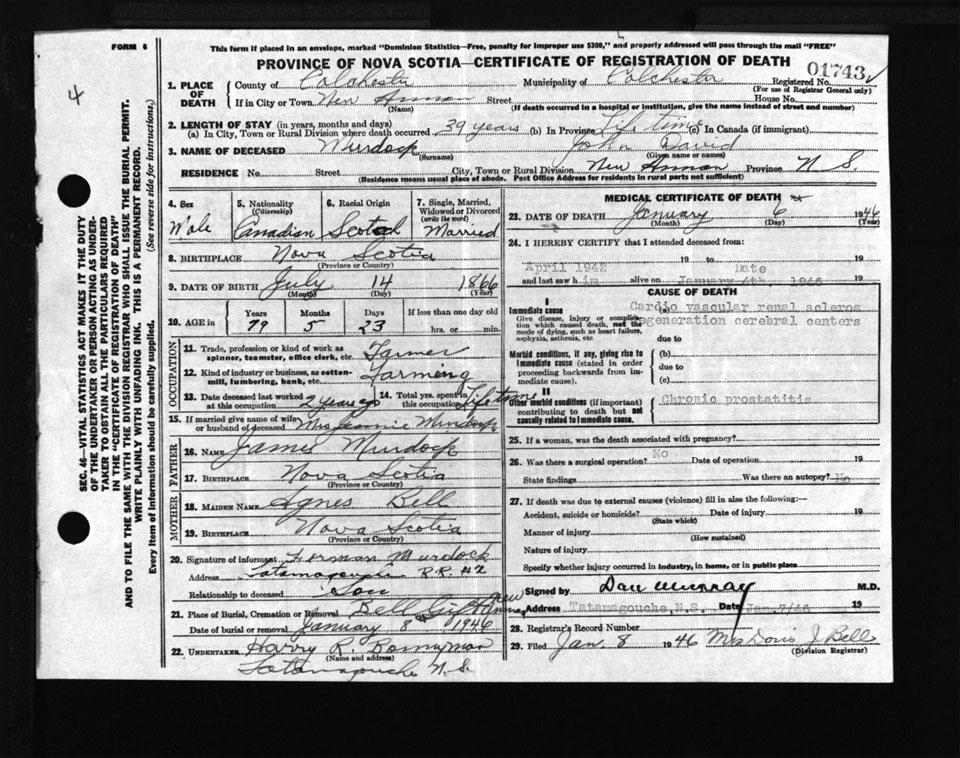 FORM 6
This form if placed in an envelope, marked "Dominion Statistics—Free, penalty for improper use $300," and properly addressed will pass through the mail "FREE"
PROVINCE OF NOVA SCOTIA—CERTIFICATE OF REGISTRATION OF DEATH
4
SEC. 46—VITAL STATISTICS ACT MAKES IT THE DUTY
OF THE UNDERTAKER OR PERSON ACTING AS UNDER-
TAKER TO OBTAIN ALL THE PARTICULARS REQUIRED
IN THE "CERTIFICATE OF REGISTRATION OF DEATH"
AND TO FILE THE SAME WITH THE DIVISION REGISTRAR WHO SHALL ISSUE THE BURIAL PERMIT.
WRITE PLAINLY WITH UNFADING INK. THIS IS A PERMANENT RECORD.
Every item of information should be carefully supplied. (See reverse side for instructions.)
1. PLACE OF DEATH County of Colchester Municipality of Colchester Registered No. 01743
(For use of Registrar General only)
If in City or Town New Annan Street House No.
(Name) (If death occurred in a hospital or institution, give the name instead of street and number)
2. LENGTH OF STAY (in years, months and days)
(a) In City, Town or Rural Division where death occurred 39 years (b) In Province Life time (c) In Canada (if immigrant)
3. NAME OF DECEASED Murdock John David
(Surname) (Given name or names)
RESIDENCE No. Street City, Town or Rural Division New Annan Province N S.
(Residence means usual place of abode. Post Office Address for residents in rural parts not sufficient)
4. Sex Male
5. Nationality (Citizenship) Canadian
6. Racial Origin Scotch
7. Single, Married, Widowed or Divorced (write the word) Married
8. BIRTHPLACE Nova Scotia
(Province or Country)
9. DATE OF BIRTH July 14 1866
(Month) (Day) (Year)
10. AGE in Years Months Days If less than one day old
79 5 23 hrs. or min.
OCCUPATION
11. Trade, profession or kind of work as spinner, teamster, office clerk, etc. Farmer
12. Kind of industry or business, as cotton-mill, lumbering, bank, etc. Farming
13. Date deceased last worked at this occupation 2 years ago 14. Total yrs. spent in this occupation Lifetime
15. If married give name of wife or husband of deceased Mrs Jennie Murdock
FATHER
16. NAME James Murdock
17. BIRTHPLACE Nova Scotia
(Province or Country)
MOTHER
18. MAIDEN NAME Agnes Bell
19. BIRTHPLACE Nova Scotia
(Province or Country)
20. Signature of informant Forman Murdock
Address Tatamagouche R.R. #2
Relationship to deceased Son
21. Place of Burial, Cremation or Removal Bell New Annan
Date of burial or removal January 8 1946
22. UNDERTAKER Harry R. Bonnyman
(Name and address)
Tatamagouche N.S.
MEDICAL CERTIFICATE OF DEATH
23. DATE OF DEATH January 6 1946
(Month) (Day) (Year)
24. I HEREBY CERTIFY that I attended deceased from:
April 1942 19 to Date 19
and last saw him alive on January 4th 1946 19
CAUSE OF DEATH
I
Immediate cause (a) Cardio vascular renal scleros
Give disease, injury or complication which caused death, not the mode of dying, such as heart failure, asphyxia, asthenia, etc
degeneration cerebral centers
due to
Morbid conditions, if any, giving rise to immediate cause (stated in order proceeding backwards from immediate cause). (b)
due to
(c)
II
Other morbid conditions (if important) contributing to death but not causally related to immediate cause.
Chronic prostatitis
25. If a woman, was the death associated with pregnancy?
26. Was there a surgical operation? No Date of operation 19
State findings Was there an autopsy? No
27. If death was due to external causes (violence) fill in also the following:—
Accident, suicide or homicide? Date of injury 19
(State which)
Manner of injury
(How sustained)
Nature of injury
Specify whether injury occurred in industry, in home, or in public place
Signed by Dan Murray M.D.
Address Tatamagouche, N.S. Date Jan. 7/46 19
28. Registrar's Record Number
29. Filed Jan. 8 1946 Mrs Doris J. Bell
(Division Registrar)